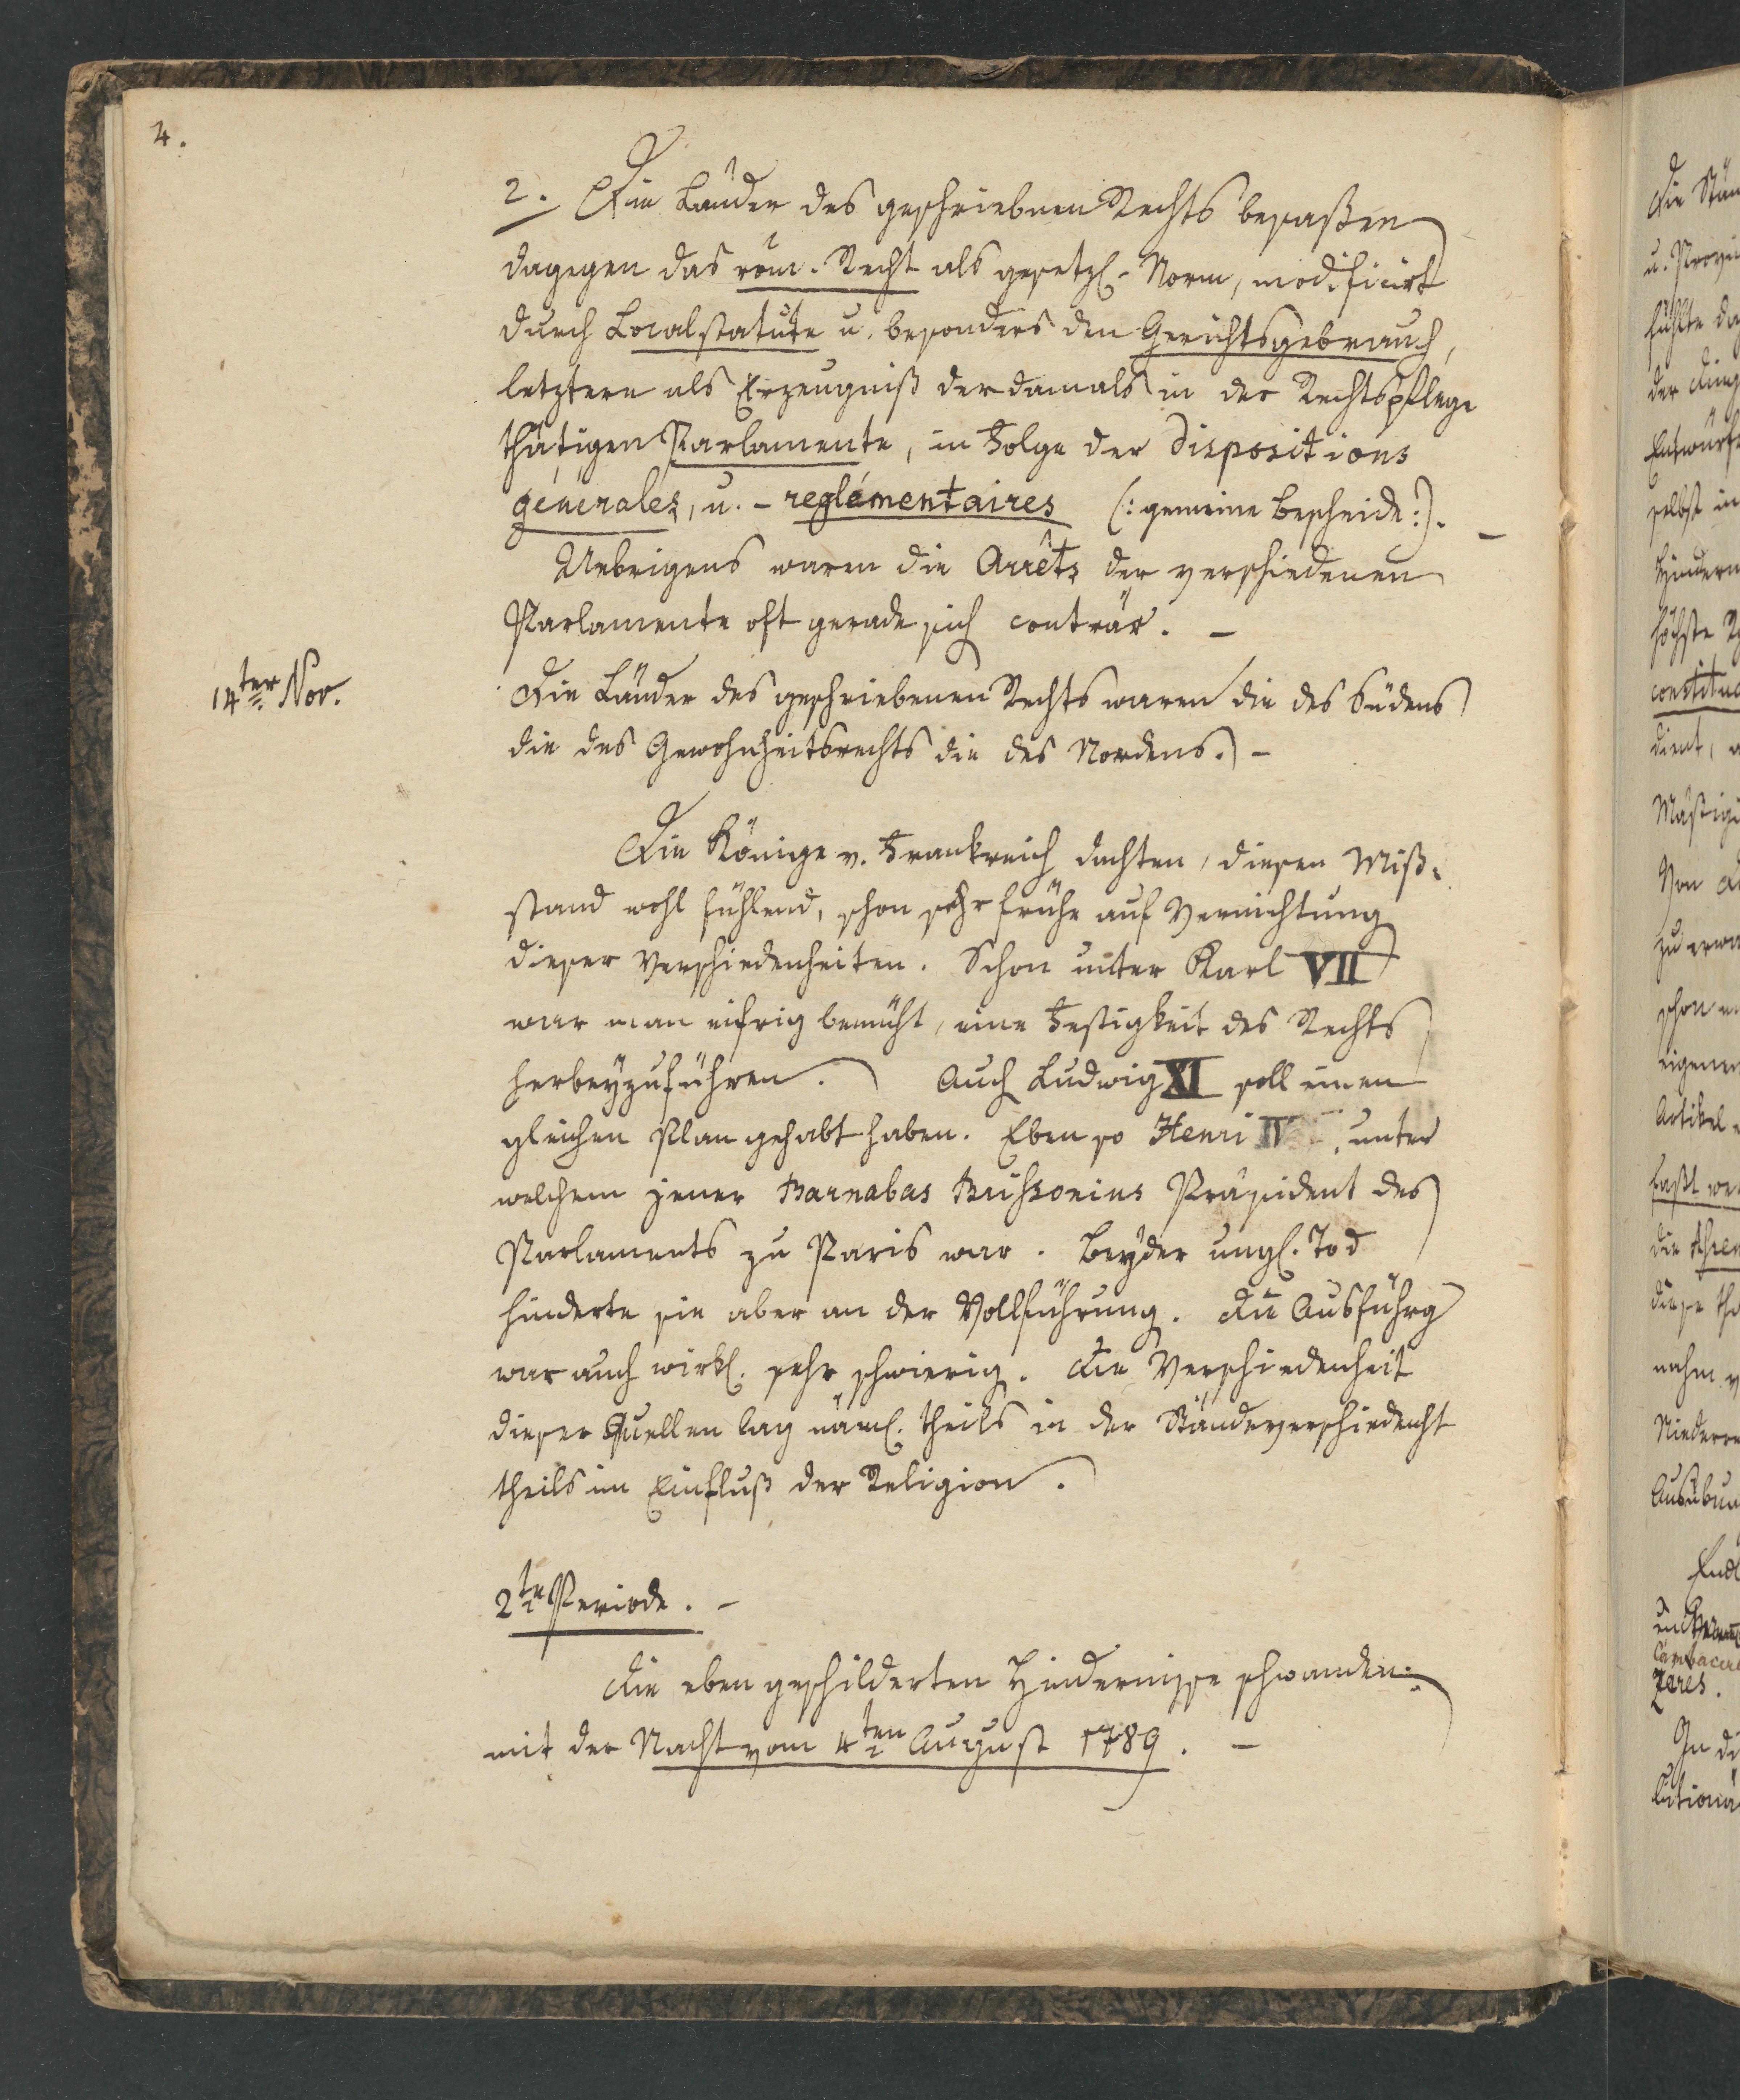 4.
2. Die Länder des geschriebnen Rechts besaßen
dagegen das röm. Recht als gesetzl. Norm, modificirt
durch Localstatute u. besonders den Gerichtsgebrauch,
letztern als Erzeugniß der damals in der Rechtspflege
thätigen Parlamente, in Folge der dispositions
générales, u. - reglémentaires (: gemeine Bescheide :). -
Uebrigens waren die Arrêts der verschiedenen
Parlamente oft gerade sich conträr. -
14ter Nov.
Die Länder des geschriebenen Rechts waren die des Südens
die des Gewohnheitsrechts die des Nordens. -
Die Könige v. Frankreich dachten, diesen Miß-
stand wohl fühlend, schon sehr frühe auf Vernichtung
dieser Verschiedenheiten. Schon unter Karl VII
war man eifrig bemüht, eine Festigkeit des Rechts
herbeyzuführen. Auch Ludwig XI soll einen
gleichen Plan gehabt haben. Eben so Henri IV, unter
welchem jener Barnabas Brissonius Präsident des
Parlaments zu Paris war. Beyder ungl. Tod
hinderte sie aber an der Vollführung. Die Ausführg
war auch wirkl. sehr schwierig. Die Verschiedenheit
dieser Quellen lag näml. theils in der Ständeverschiedenht
theils im Einfluß der Religion.
2te Periode. -
Die eben geschilderten Hindernisse schwanden
mit der Nacht vom 4ten August 1789. -
Die
u.
fühlte
der
selbst in
höchste
dient,
Von
schon
Artikel
faßt
die
diese
nahm
In